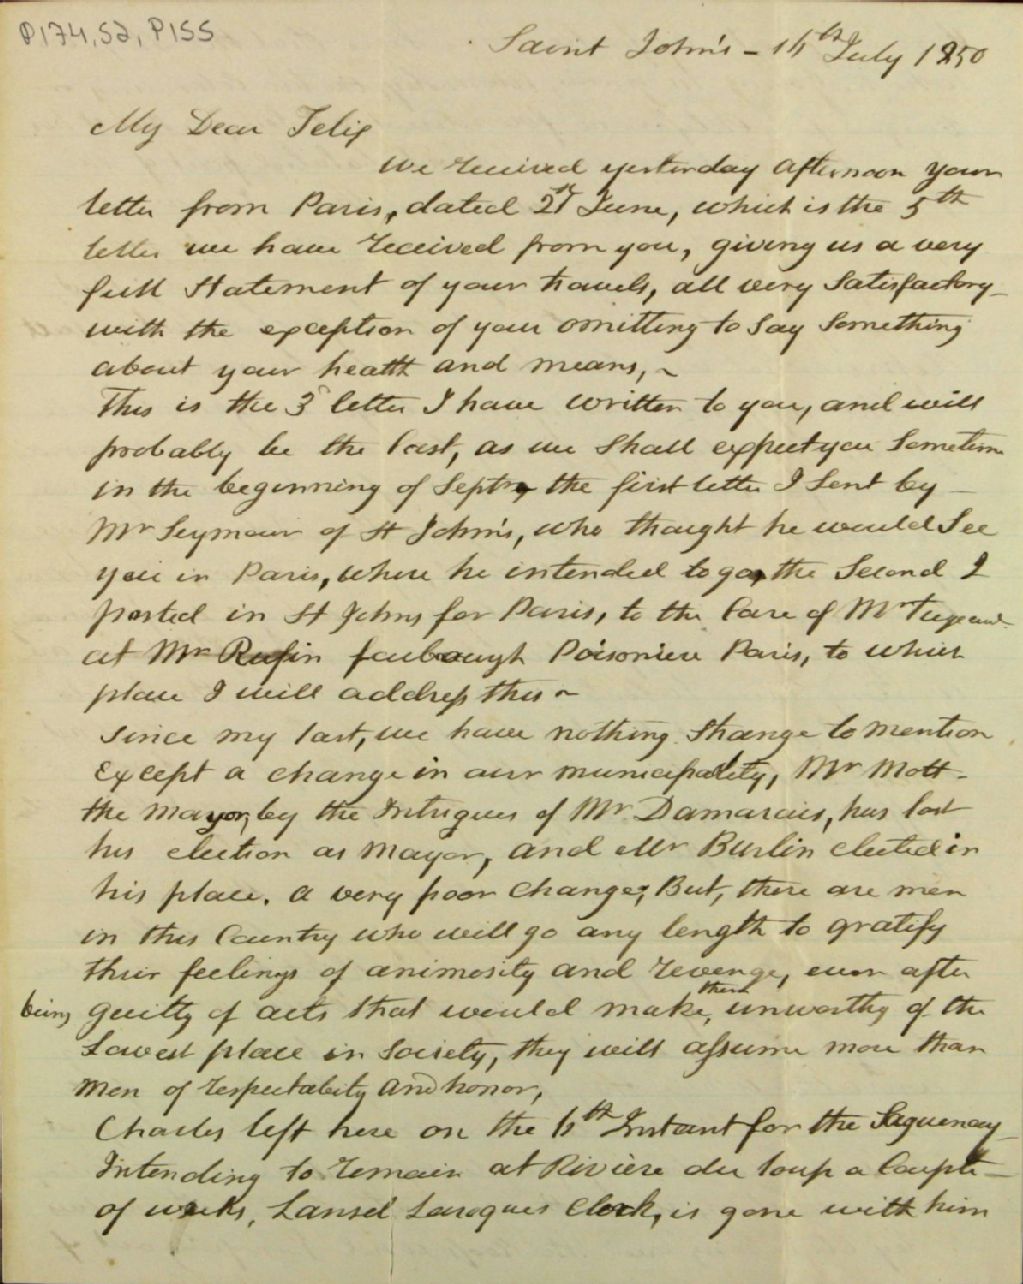 P174,S2,P155
Saint John's - 14th July 1850
My Dear Felix
We received yesterday afternoon your
letter from Paris, dated 21st June, which is the 5th
letter we have received from you, giving us a very
full Statement of your travels, all very Satisfactory
with the exception of your omitting to Say Something
about your health and means, ~
This is the 3d letter I have written to you, and will
probably be the last, as we Shall expect you Sometime
in the beginning of Septre, the first letter I Sent by
Mr Seymour of St John's, who thought he would See
you in Paris, where he intended to go, the Second I
posted in St Johns for Paris, to the Care of Mr
at Mr Rufin faubough Poisoniere Paris, to which
place I will address this ~
Since my last, we have nothing Strange to mention
Except a change in our municipality, Mr Mott
the Mayor, by the Intrigues of Mr Damarais, has lost
his election as Mayor, and Mr Burlin elected in
his place. a very poor change; But, there are men
in this Country who will go any length to gratify
their feelings of animosity and revenge, even after
being guilty of acts that would make them unworthy of the
Lowest place in Society, they will assume more than
Men of respectability and honor,
Charles left here on the 11th Instant for the Saguenay
Intending to remain at Rivière du loup a Couple
of weeks, Lansel Laroques Clerk, is gone with him